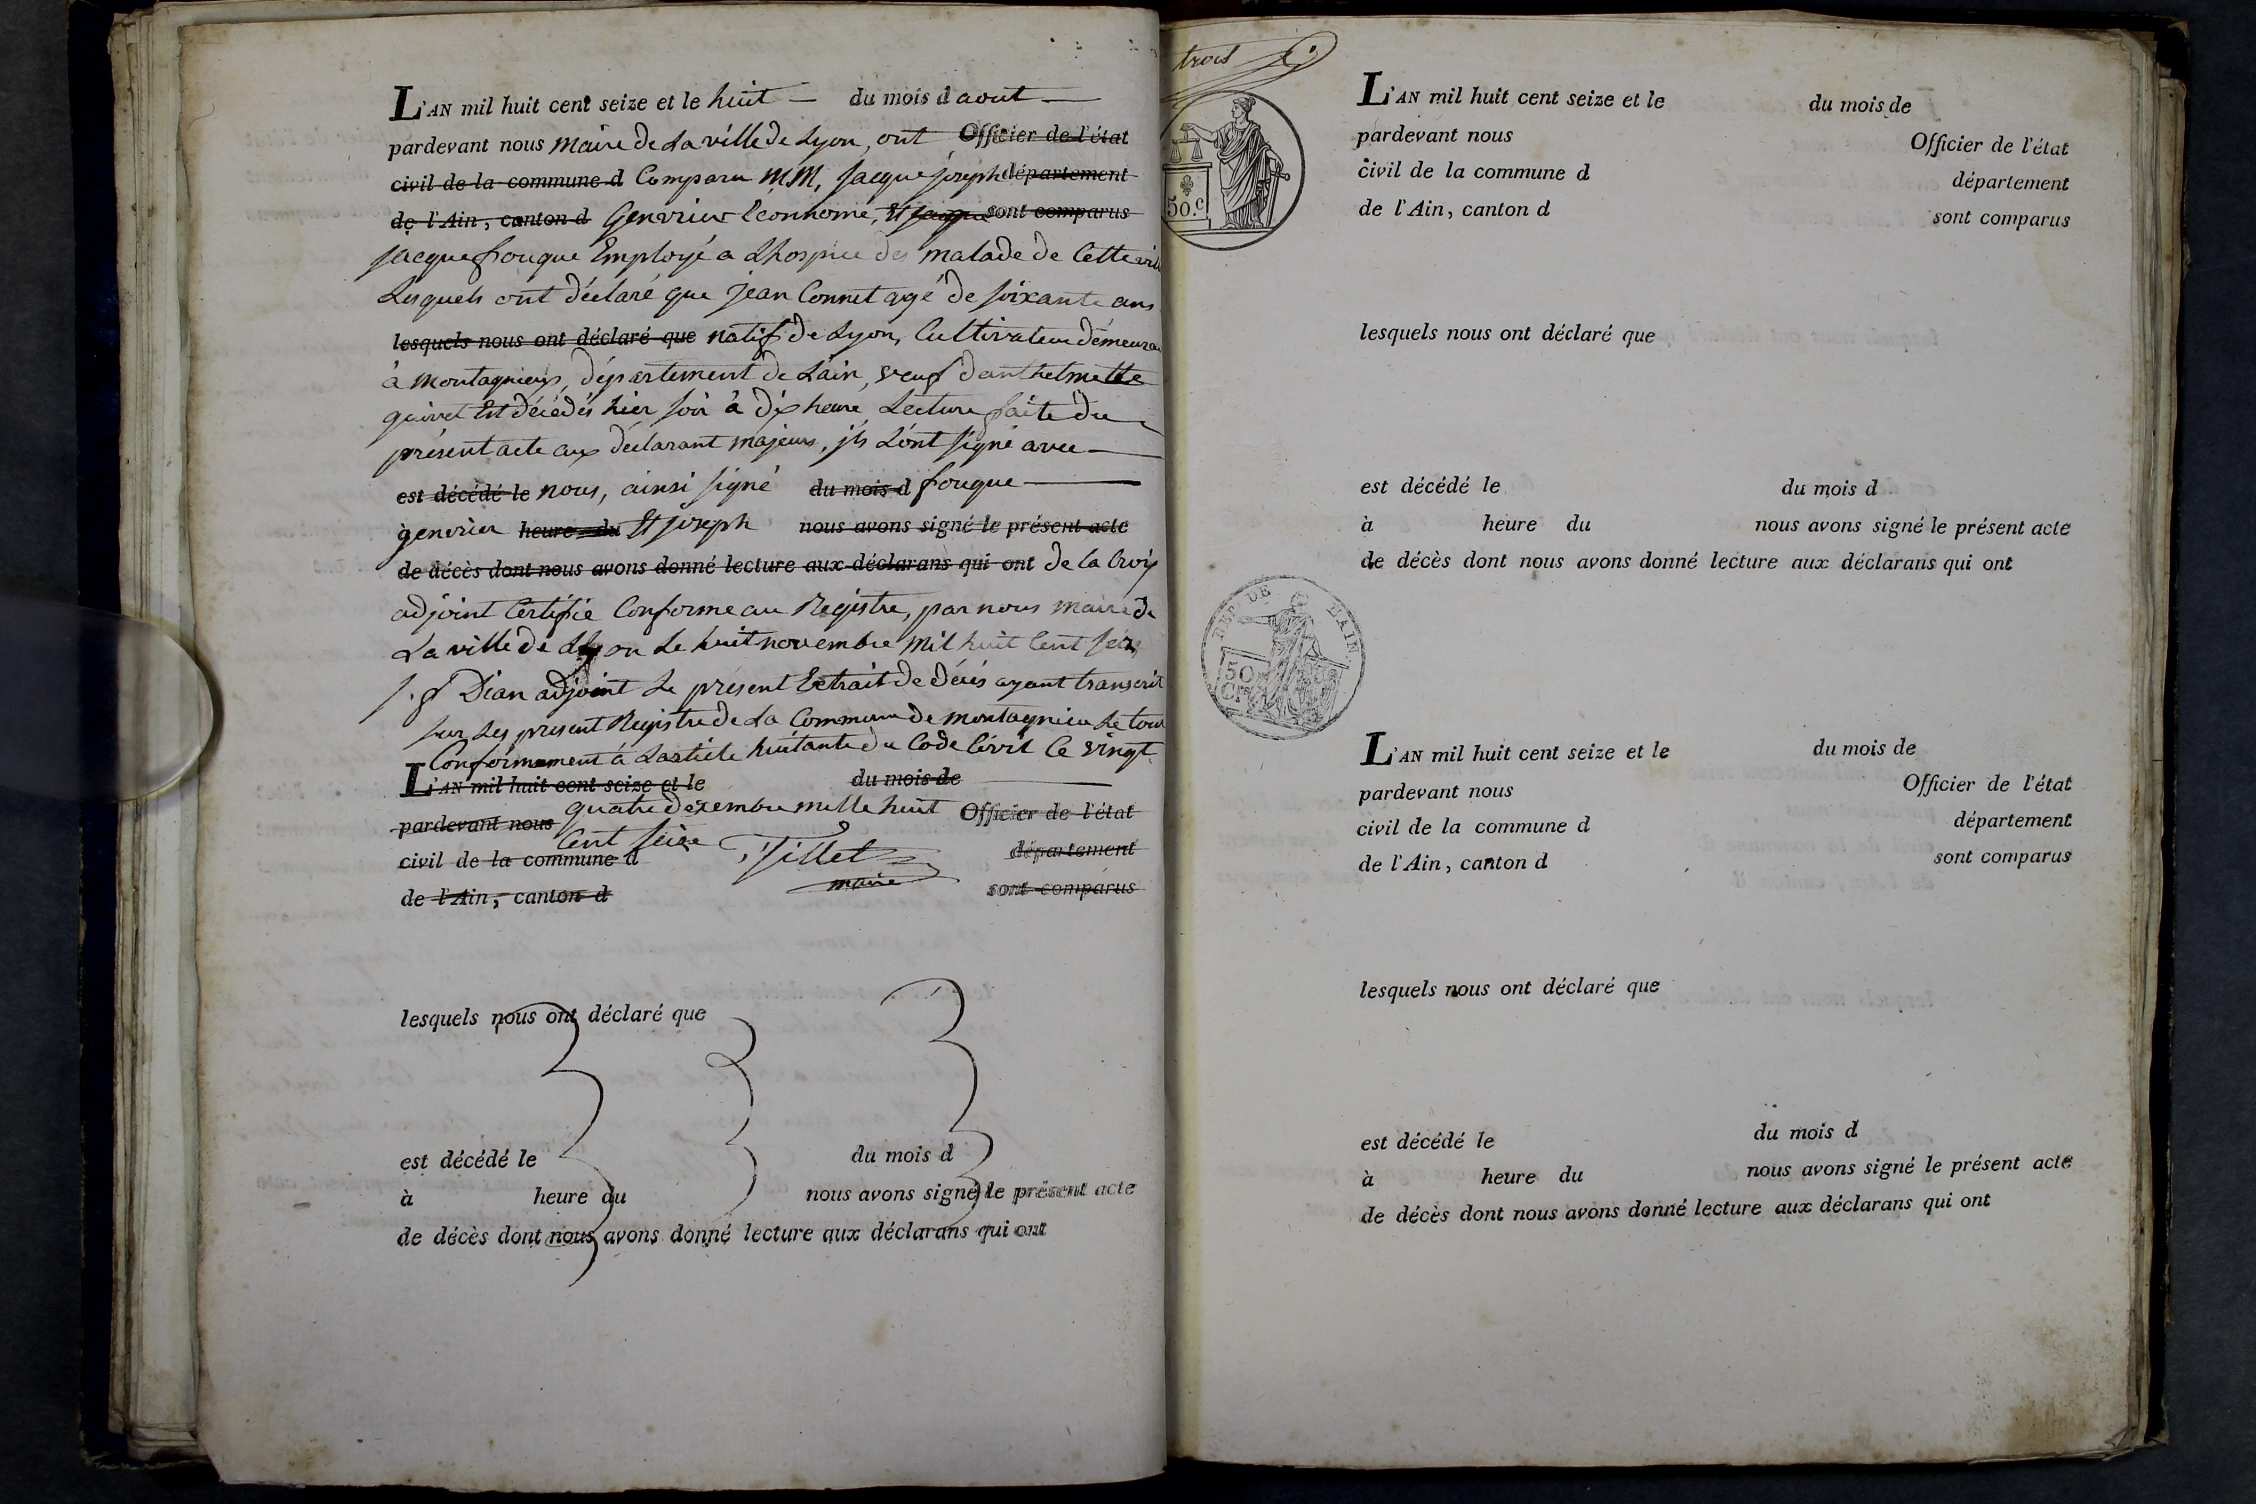 L'AN mil huit cent seize et le huit du mois d aout
pardevant nous maire de La ville de Lyon, ont Officier de l'état
civil de la commune d Comparu MM, jacque joseph département
de l'Ain, canton d Genevrier Econnome, Et jacque sont comparus
jacque fouque Employé a Lhospice des malade de Cette ville
Lesquels ont déclaré que jean Connet agé de soixante ans
lesquels nous ont déclaré que natif de Lyon, Cultivateur demeuran
à montagnieux, département de Lain, veuf danthelmette
quivet Est décédés hier soir à dix heure Lecture faite du
présent acte aux déclarant majeurs, jls Lont signé avec
est décédé le nous, ainsi signé du mois d fouque
genevrier heure du Et joseph nous avons signé le présent acte
de décès dont nous avons donné lecture aux déclarans qui ont de la Croix
adjoint Certifié Conforme au Registre, par nous maire de
La ville de Lyon Le huit novembre mil huit Cent seize
j. f Dian adjoint Le présent Extrait de décès ayant transcrit
sur Les present Registre de La Commune de montagnieu Le tout
Conformement à Larticle huitante du Code Civil Ce vingt
L'AN mil huit cent seize et le du mois de
quatre dexembre mille huit Officier de l'état
pardevant nous
Cent seize
civil de la commune d Sillet département
maire
de l'Ain, canton d sont comparus
lesquels nous ont déclaré que
est décédé le du mois d
à heure du nous avons signé le présent acte
de décès dont nous avons donné lecture aux déclarans qui ont
trois
50.c
L'AN mil huit cent seize et le du mois de
pardevant nous Officier de l'état
civil de la commune d département
de l'Ain, canton d sont comparus
lesquels nous ont déclaré que
est décédé le du mois d
à heure du nous avons signé le présent acte
de décès dont nous avons donné lecture aux déclarans qui ont
DE L'AIN
50
L'AN mil huit cent seize et le du mois de
pardevant nous Officier de l'état
civil de la commune d département
de l'Ain, canton d sont comparus
lesquels nous ont déclaré que
est décédé le du mois d
à heure du nous avons signé le présent acte
de décès dont nous avons donné lecture aux déclarans qui ont